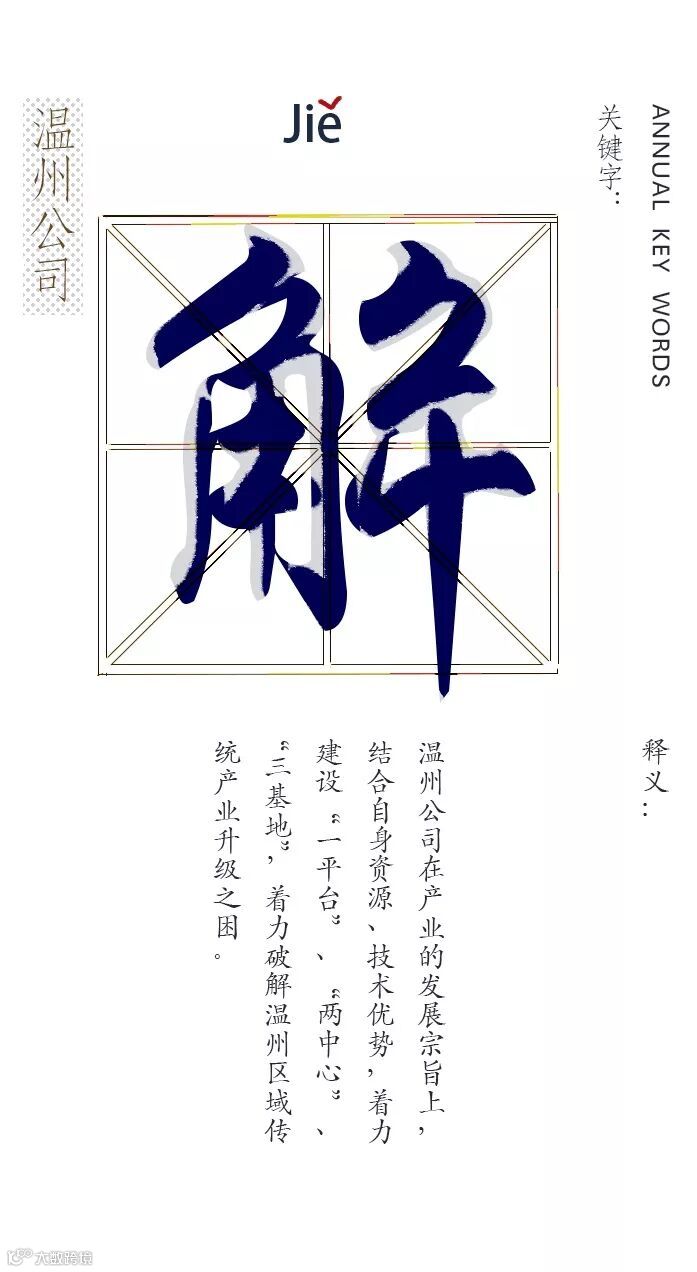 ANNUAL KEY WORDS
关键字：
Jiě
解
温州公司
释义：
温州公司在产业的发展宗旨上，
结合自身资源、技术优势，着力
建设“一平台”、“两中心”、
“三基地”，着力破解温州区域传
统产业升级之困。
大数跨境